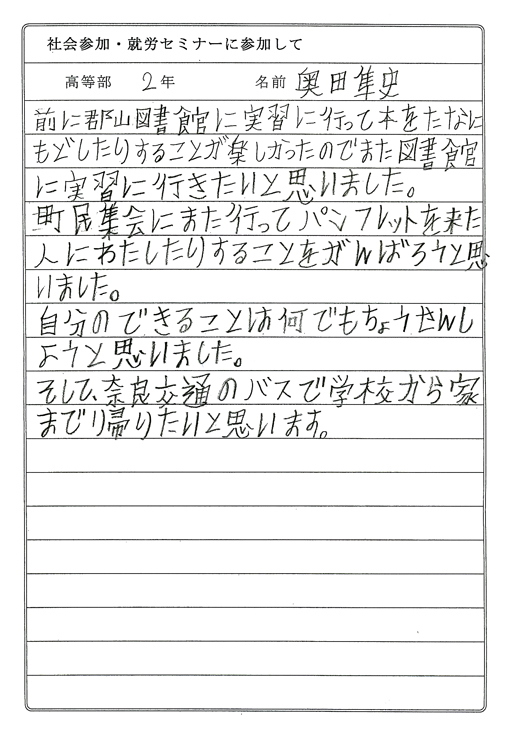 社会参加・就労セミナーに参加して
高等部 2年 名前 奥田隼史
前に郡山図書館に実習に行って本をたなに
もどしたりすることが楽しかったのでまた図書館
に実習に行きたいと思いました。
町民集会にまた行ってパンフレットを来た
人にわたしたりすることをがんばろうと思
いました。
自分のできることは何でもちょうせんし
ようと思いました。
そして、奈良交通のバスで学校から家
までり帰りたいと思います。